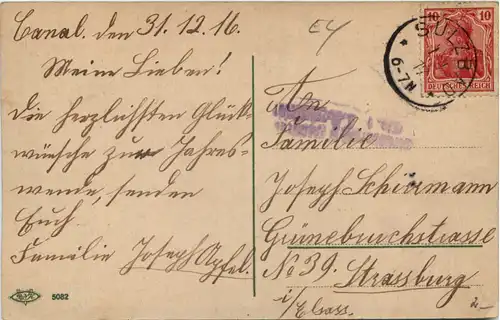 Canal. den 31.12.16.
Meine Lieben!
Die herzlichsten Glück-
wünsche zur Jahres-
wende, senden
Euch
Familie Joseph Apfel.
5082
E4
10 10
DEUTSCHES REICH
SULZ
6-7N
An
Familie
Joseph Schirmann
Grünebruchstrasse
No 39. Strassburg
i/Elsass.